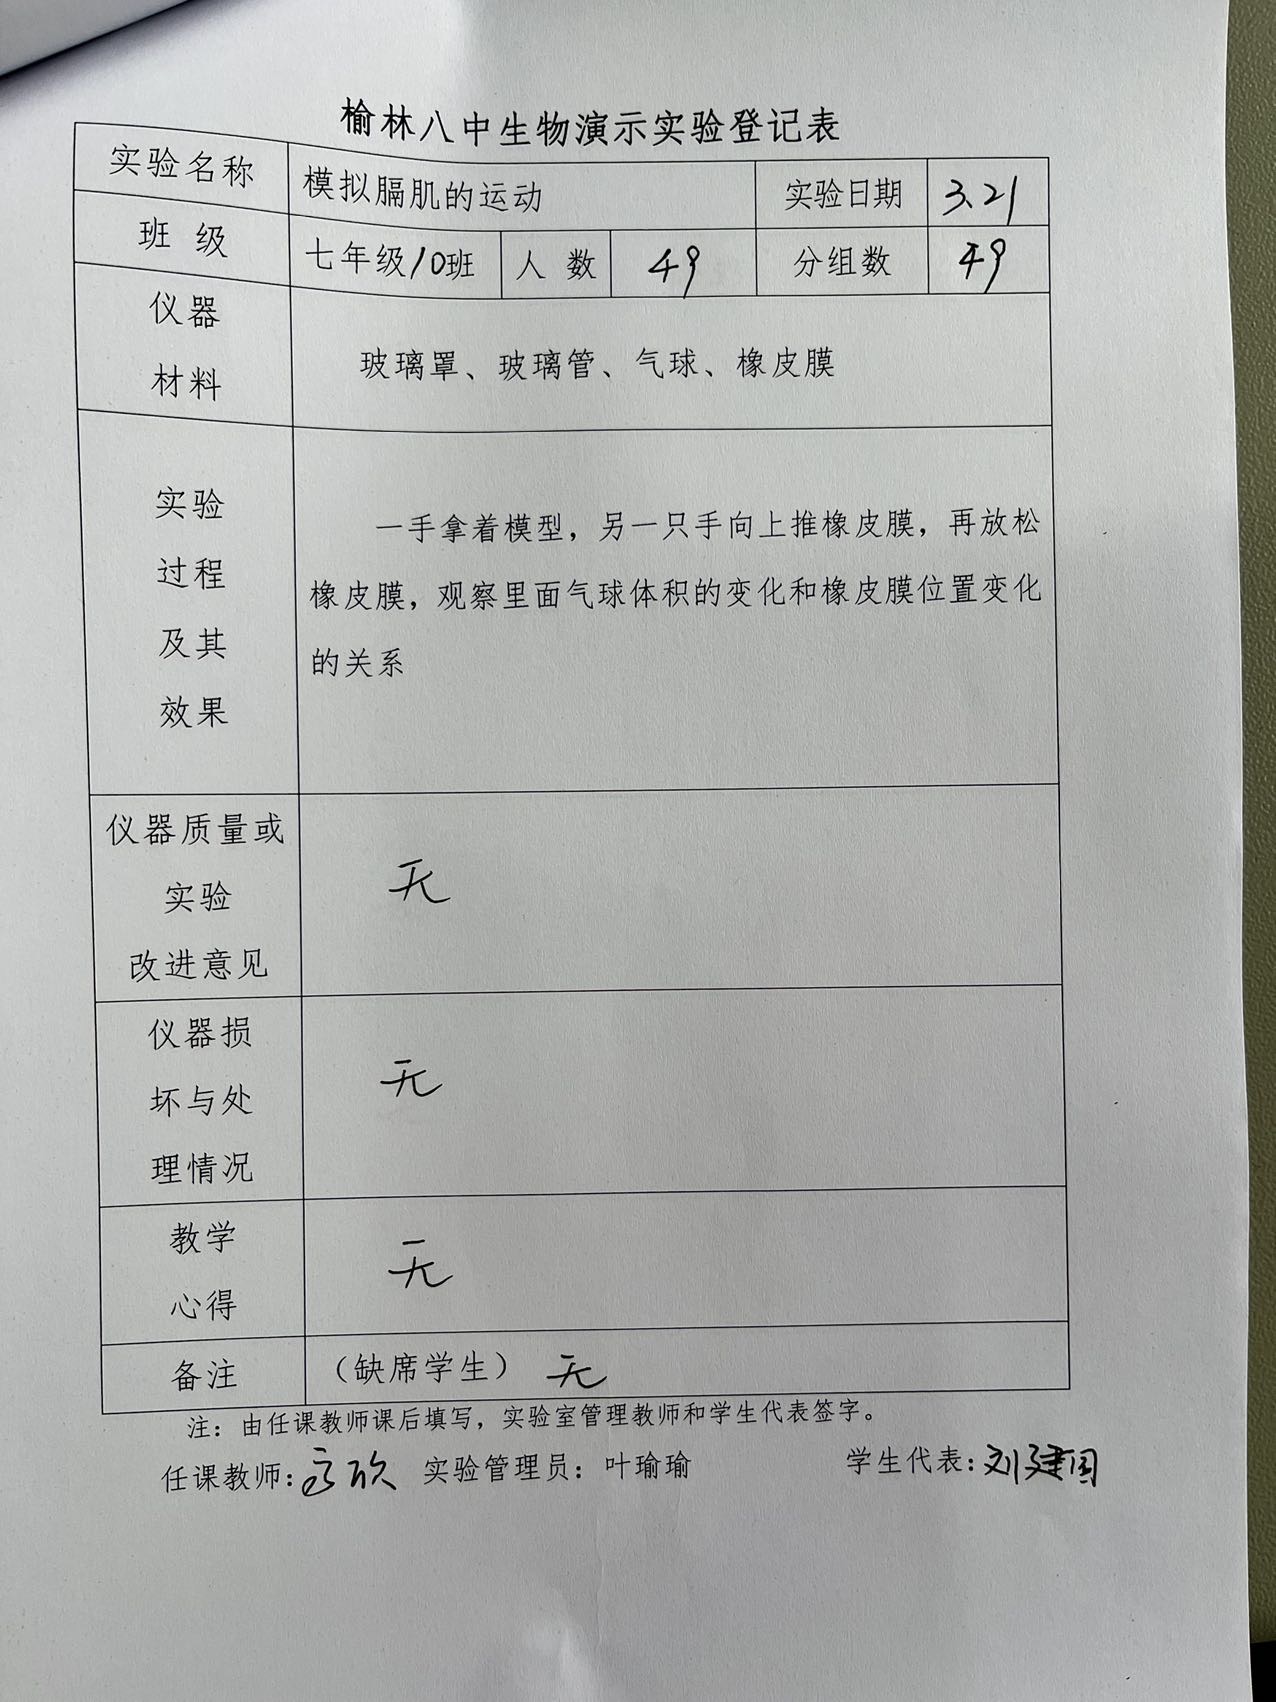 榆林八中生物演示实验登记表
实验名称 模拟膈肌的运动 实验日期 3.21
班 级 七年级10班 人 数 49 分组数 49
仪器
材料
玻璃罩、玻璃管、气球、橡皮膜
实验
过程
及其
效果
一手拿着模型，另一只手向上推橡皮膜，再放松
橡皮膜，观察里面气球体积的变化和橡皮膜位置变化
的关系
仪器质量或
实验
改进意见
无
仪器损
坏与处
理情况
无
教学
心得
无
备注 （缺席学生） 无
注：由任课教师课后填写，实验室管理教师和学生代表签字。
任课教师: 实验管理员：叶瑜瑜 学生代表:刘建国